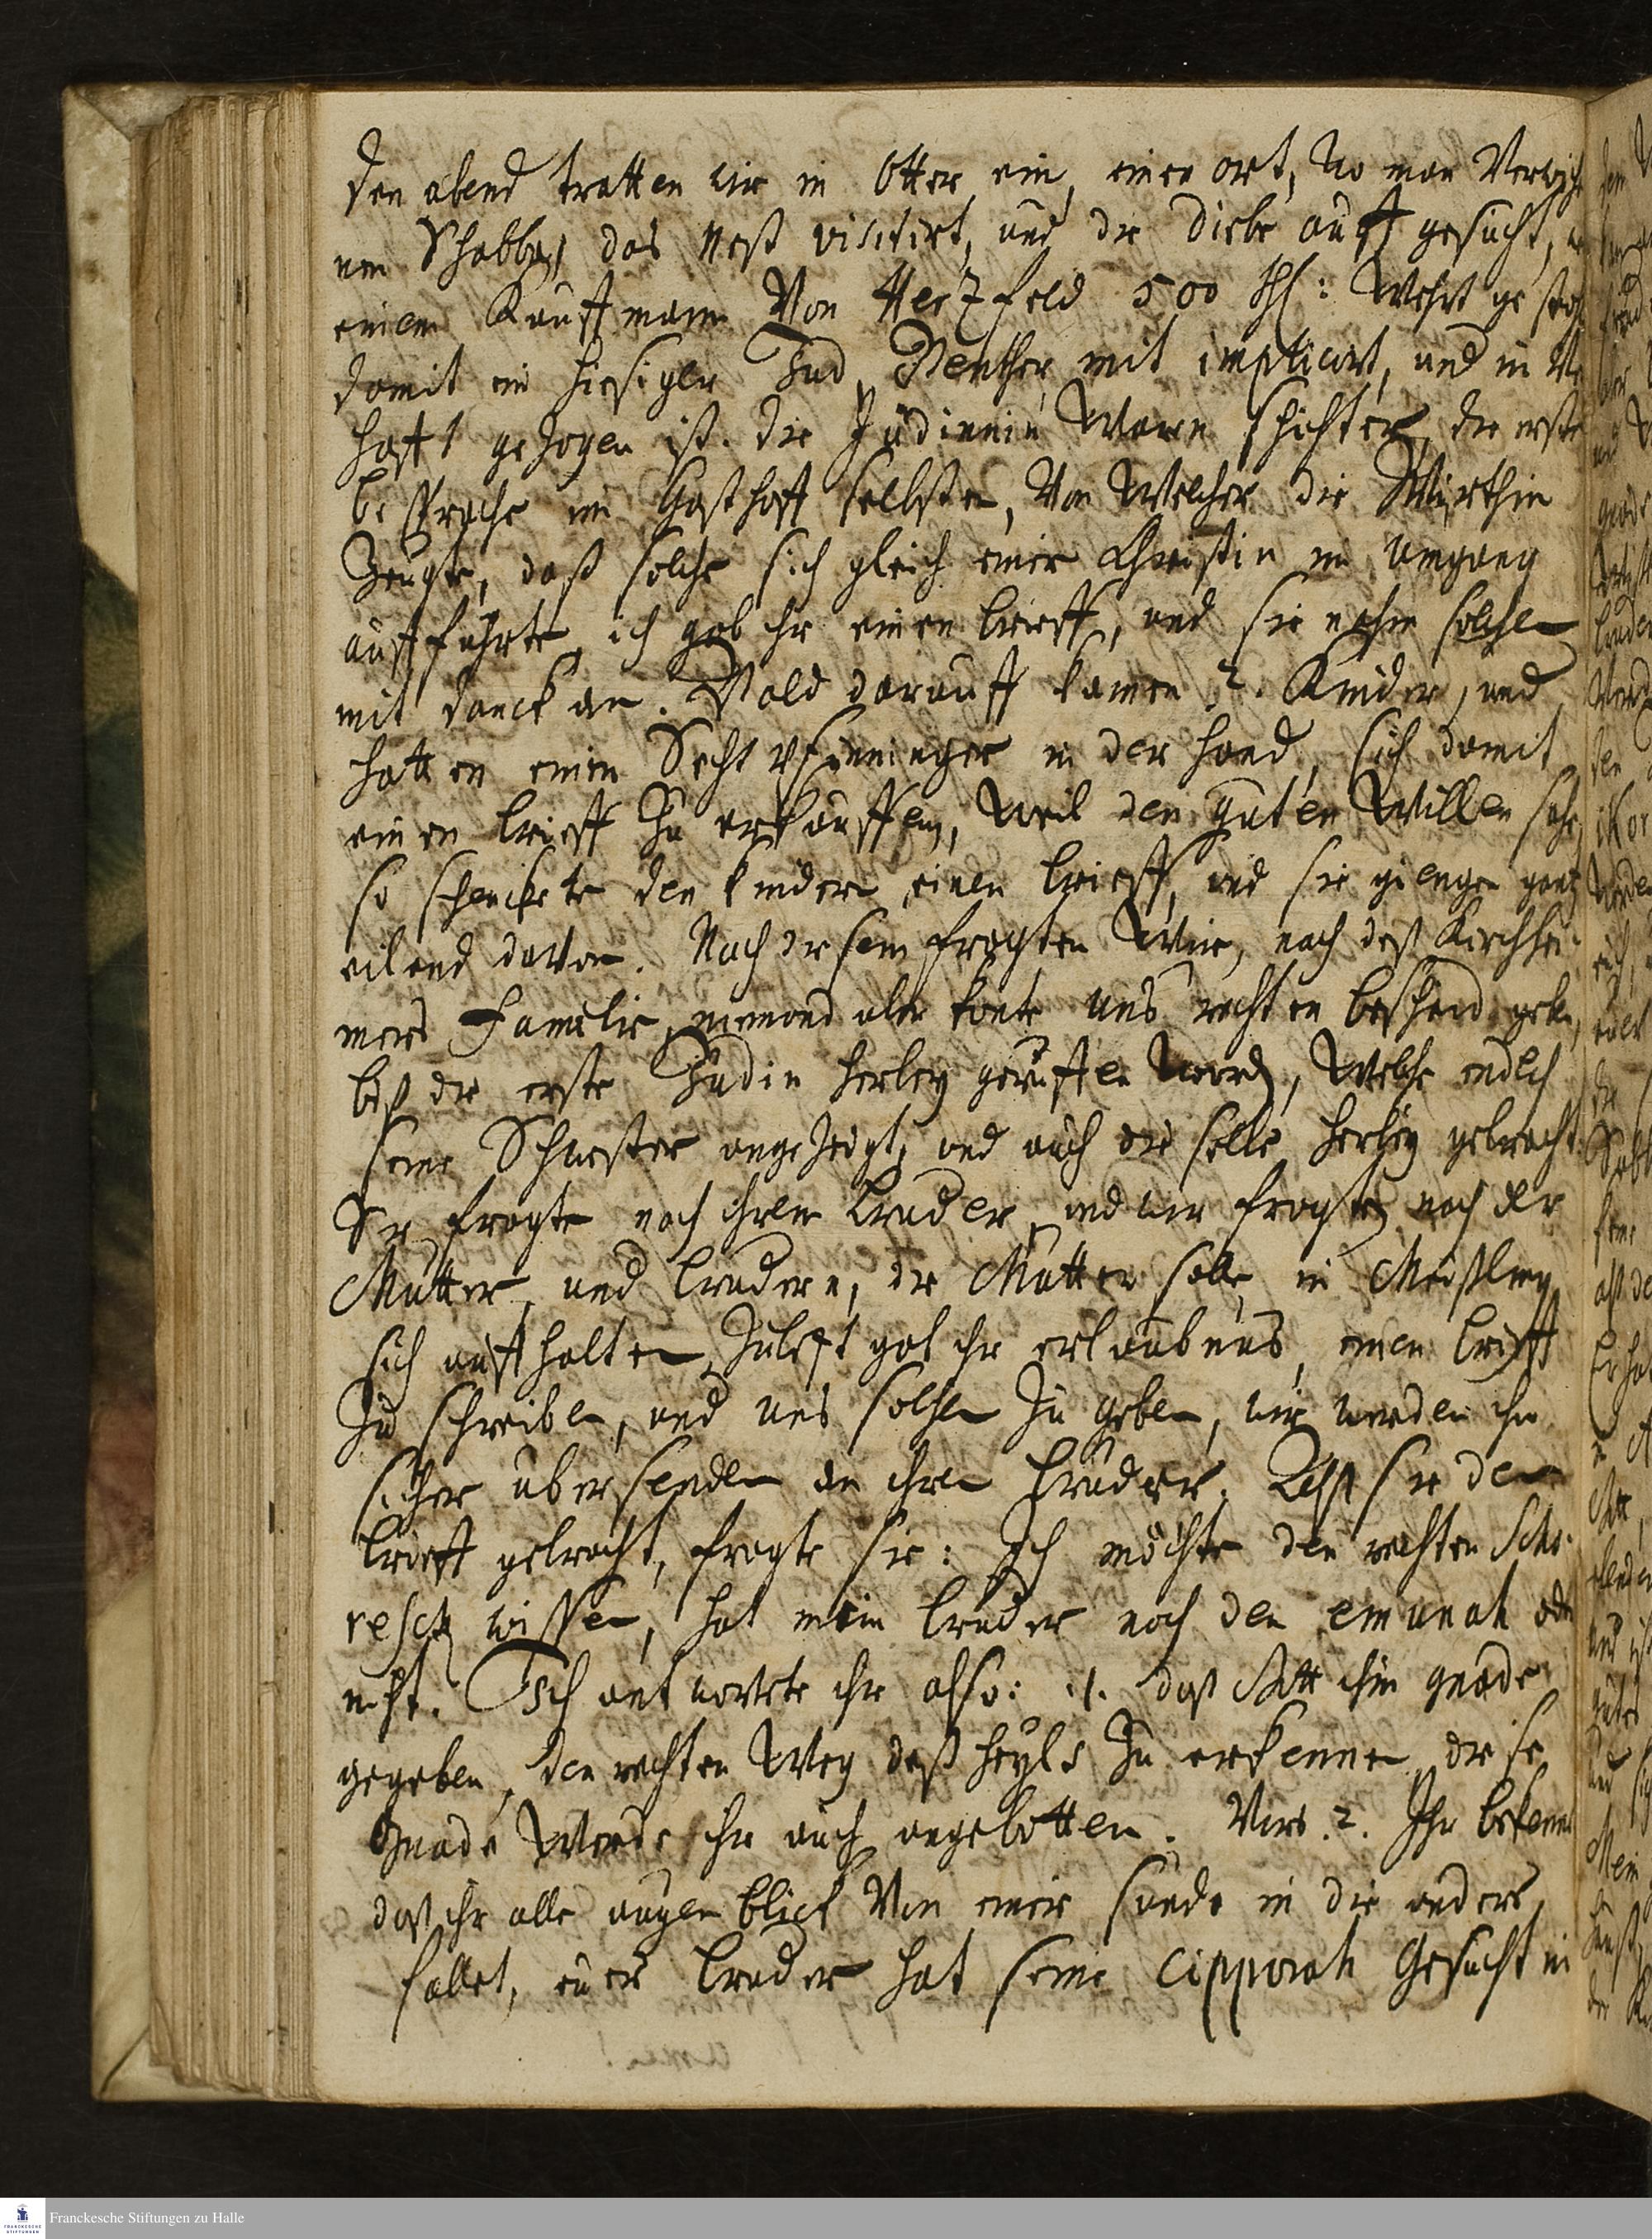 den abend tratten wir in Otter ein, einen ort, wo man Verwich
nen Schabbas das Nest visitirt, und die Diebe auff gesucht,
einem Kauffmann Von Hertzfeld 500 Rthl: Wehrt gestohl
damit ein hiesiger Jud, Benther mit implicirt, und in Ver
hafft gezogen ist. die Jüdinnin Waren schichter, die erste
besprache im Gasthoff selbsten, Von Welcher die Würthin
Zeugte, daß solche sich gleich einer Christin im Umgang
aufführte, ich gab ihr einen brieff, und sie nahm solchen
mit danck an. Bald darauff kamen 2. Kinder, und
hatten einen Sechspfenninger in der hand, sich damit
einen brieff zu erkauffen, Weil den guten Willen sahe,
so schenckete den kindern einen brieff, und sie giengen gantz
eilend davon. Nach diesem fragten Wir, nach deß Kirchhei-
mers Familie, niemand aber konte uns rechten bescheid geben,
biß die erste Jüdin herbey geruffen Word, Welche endlich
seine Schwester angezeigt, und auch dieselbe herbey gebracht.
Sie fragte nach ihrem bruder, und wir fragten nach der
Mutter, und brudern, die Mutter solle in
sich auffhalten, Zuletzt gab ihr erlaubnus, einen brieff
Zu schreiben, und uns solchen Zu geben, wir werden ihn
sicher übersenden an ihren bruder. Alß sie den
brieff gebracht, fragte sie: Ich möchte den rechten Scho-
resch wissen, hat mein bruder noch den emunah oder
nicht. Ich antwortete ihr also: 1. daß Gott ihm gnade
gegeben, den rechten Weg deß heyls Zu erkennen, diese
Gnade Werde ihr auch angebotten. Vors. 2. Ihr bekennet
daß ihr alle augenblick Von einer sunde in die andere
fallet, euer bruder hat seine Cipporah Gesucht in
Franckesche Stiftungen zu Halle